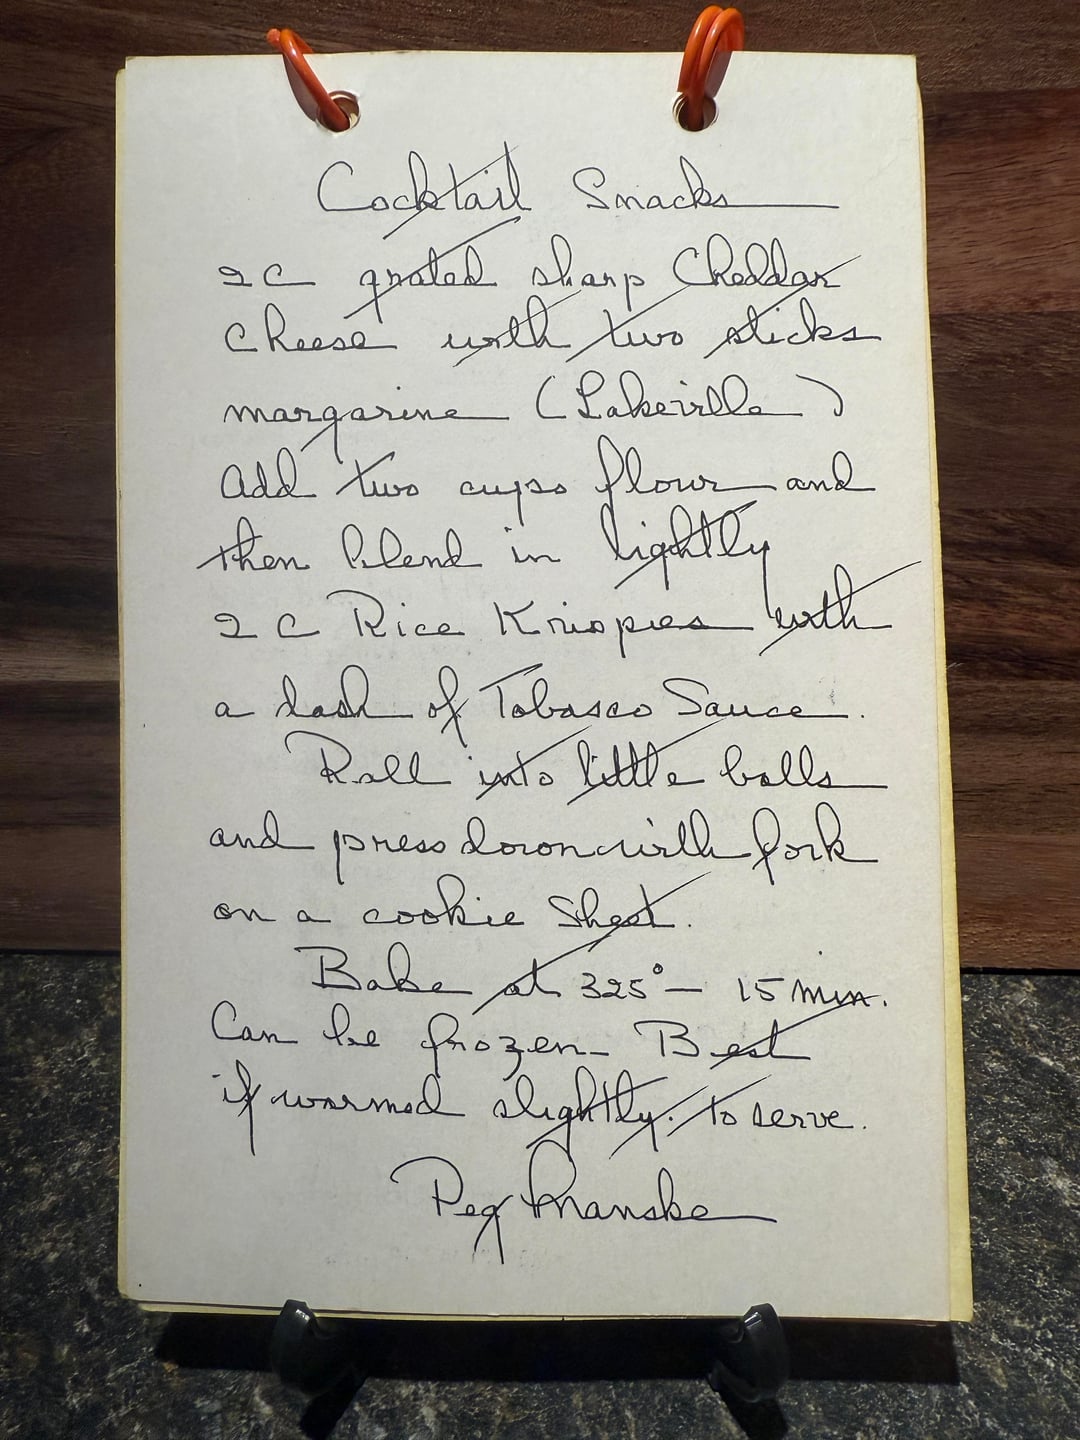 Cocktail Snacks
2 C grated sharp Cheddar
Cheese with two sticks
margarine (Lakeville)
Add two cups flour and
then blend in lightly
2 C Rice Krispies with
a dash of Tobasco Sauce.
Roll into little balls
and press down with fork
on a cookie sheet.
Bake at 325° – 15 min.
Can be frozen – Best
if warmed slightly. to serve.
Peg Manske